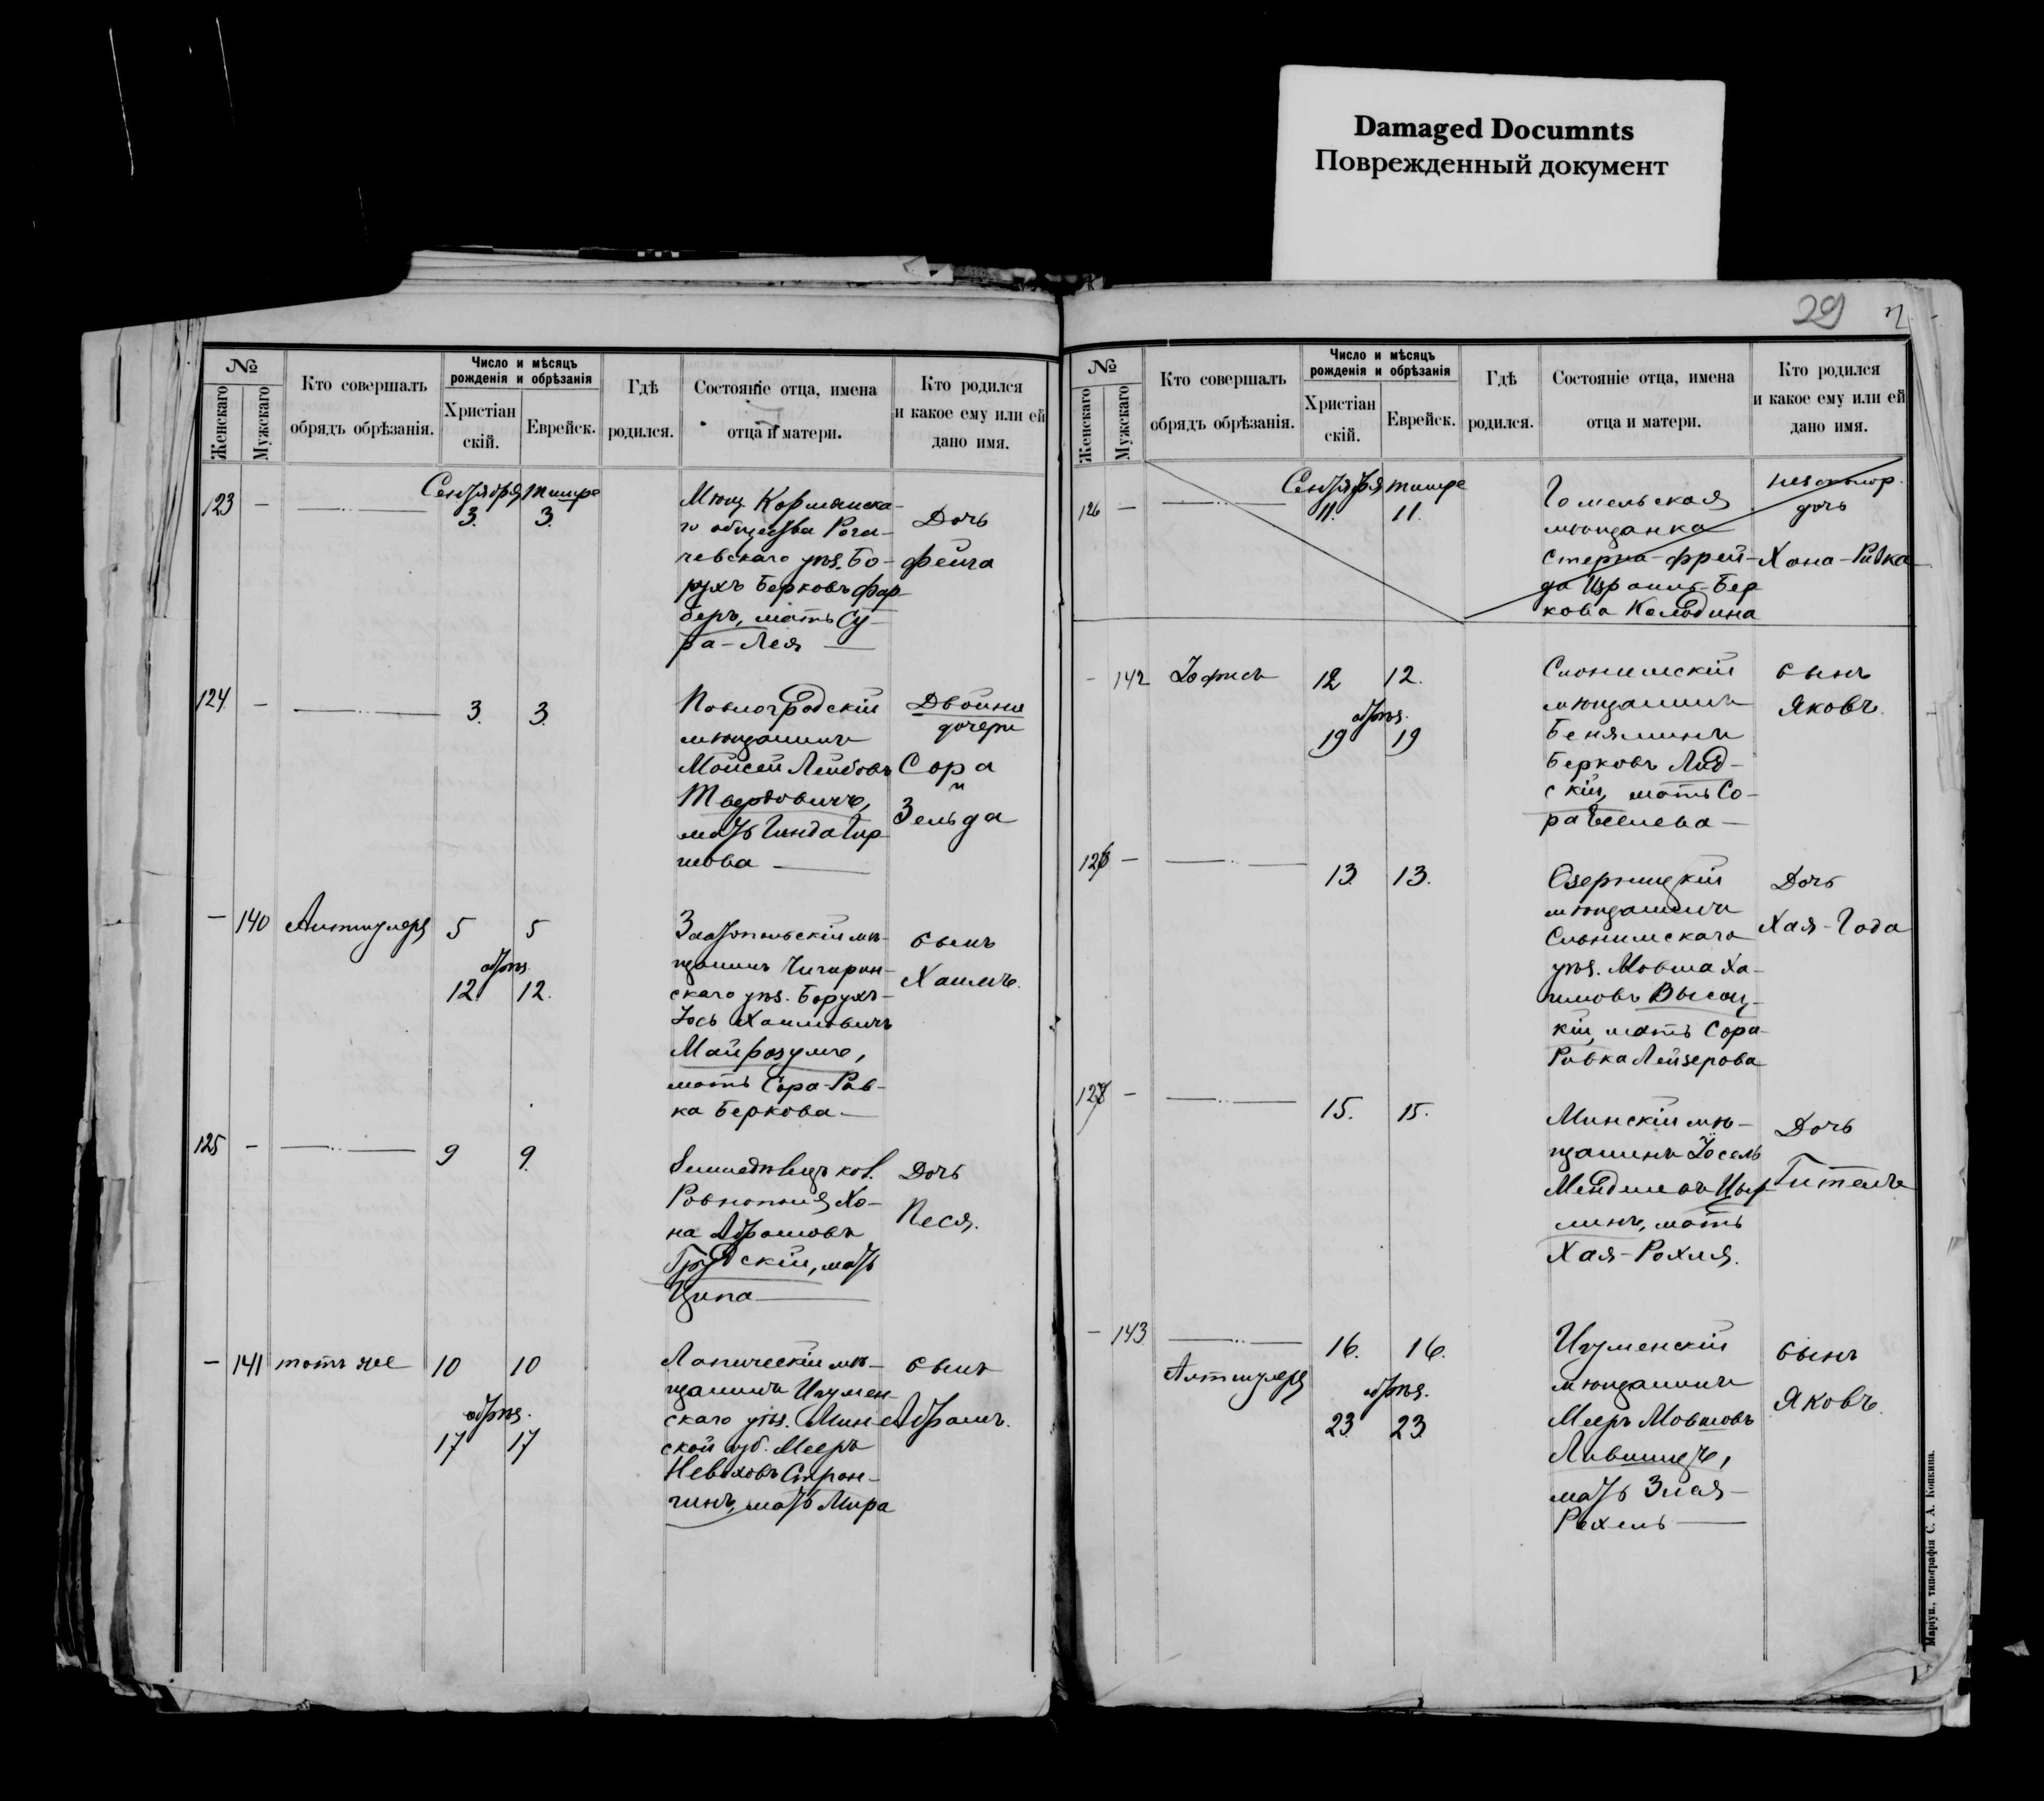 Damaged Documnts
Поврежденный документ
29
№
Женскаго
Мужскаго
Кто совершалъ
обрядъ обрѣзанія.
Число и мѣсяцъ
рожденія и обрѣзанія
Христіан
скій.
Еврейск.
Гдѣ
родился.
Состояніе отца, имена
отца и матери.
Кто родился
и какое ему или ей
дано имя.
Сентября Тишре
123 —
3. 3.
Мѣщ. Кормянска-
го общества Рога-
чевскаго уѣз. Бо-
рухъ Берковъ Фар-
беръ, мать Су-
ра-Лея
Дочь
Фейга
124. —
3. 3.
Павлоградскій
мѣщанинъ
Мойсей Лейбовъ
Твердовичъ,
мать Гинда Гир
шова
Двойни
дочери
Сора
и
Зельда
— 140 Алтшулеръ 5 5
обрѣз.
12. 12.
Златопольскій мѣ-
щанинъ Чигирин-
скаго уѣз. Борухъ-
Іось Хаимовичъ
Майфозумъ,
мать Сора-Рив-
ка Беркова
сынъ
Хаимъ.
125 —
9 9.
Землед. кол.
Ровнополя Хо-
на Абрамовъ
Грудскій, мать
Ципа
Дочь
Песя.
— 141 тотъ же 10 10
обрѣз.
17 17
Лапическій мѣ-
щанинъ Игумен-
скаго уѣз. Мин-
ской губ. Мееръ
Неваховъ Строн-
гинъ, мать Мира
сынъ
Абрамъ.
№
Женскаго
Мужскаго
Кто совершалъ
обрядъ обрѣзанія.
Число и мѣсяцъ
рожденія и обрѣзанія
Христіан
скій.
Еврейск.
Гдѣ
родился.
Состояніе отца, имена
отца и матери.
Кто родился
и какое ему или ей
дано имя.
Сентября Тишре
126 —
11. 11.
Гомельская
мѣщанка
Стерна-Фрей-
да Израиль-Бер
кова Колодина
дочь
Хана-Ривка
— 142 Іофисъ 12 12.
обрѣз.
19 19
Слонимскій
мѣщанинъ
Беняминъ
Берковъ Лид-
скій, мать Со-
ра
сынъ
Яковъ.
126 —
13. 13.
Озерницкій
мѣщанинъ
Слонимскаго
уѣз. Мовша Ха-
имовъ Высоц-
кій, мать Сора-
Ривка Лейзерова
Дочь
Хая-Года
127 —
15. 15.
Минскій мѣ-
щанинъ Іосель
Менделевъ Цир-
линъ, мать
Хая-Рохля.
Дочь
Гитель
— 143
16. 16.
Алтшулеръ
обрѣз.
23. 23.
Игуменскій
мѣщанинъ
Мееръ Мовшовъ
Лившицъ,
мать Злая-
Рохель
сынъ
Яковъ.
Маріуп., типографія С. А. Копкина.